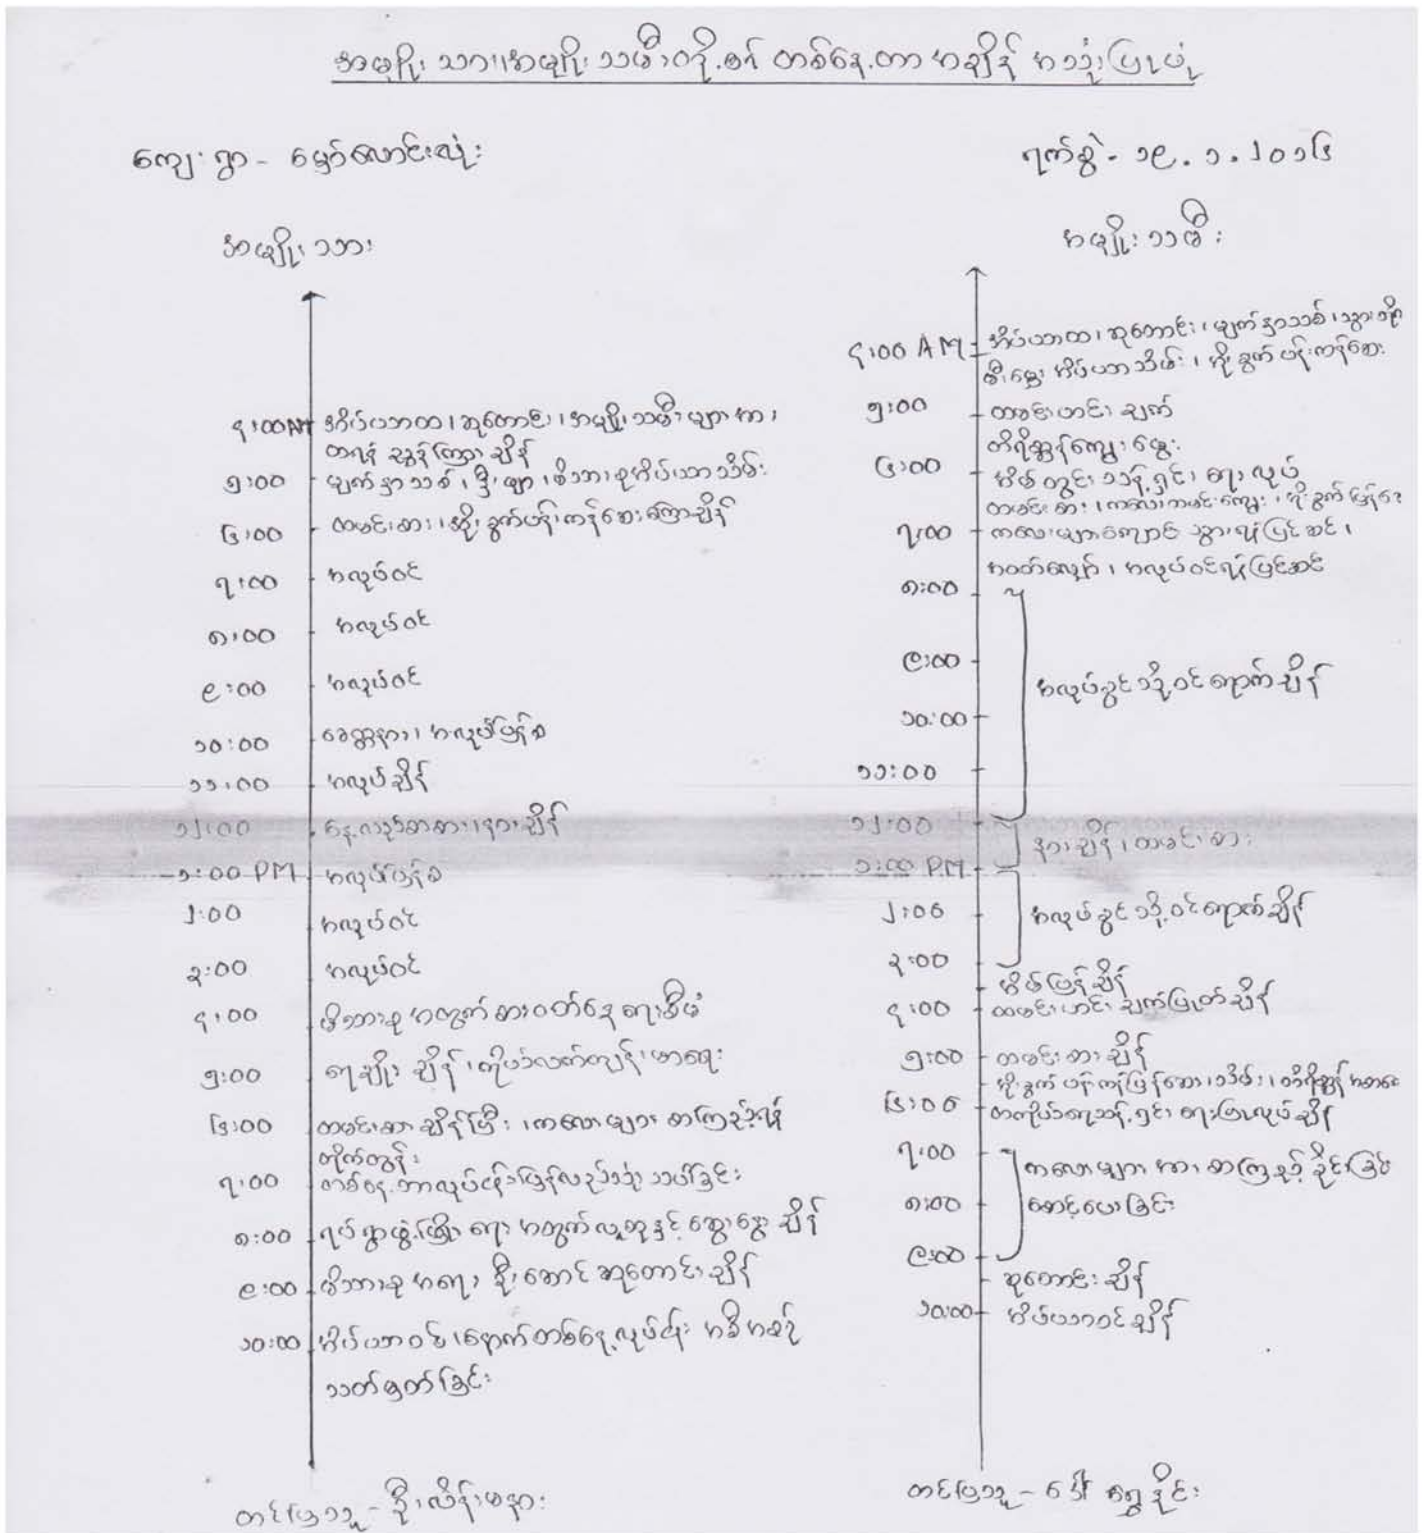 အမျိုးသား၊အမျိုးသမီးတို့၏ တစ်နေ့တာ အချိန် အသုံးပြုပုံ
ကျေးရွာ - မှော်လောင်းလုံး
ရက်စွဲ - ၁၉.၁.၂၀၁၆
အမျိုးသား
၄:၀၀AM အိပ်ယာထ၊ ဆုတောင်း၊ အမျိုးသမီးများအား၊
တရုံ ညွှန်ကြားချိန်
၅:၀၀ မျက်နှာသစ်၊ မိသားစုအိပ်ယာသိမ်း
၆:၀၀ ထမင်းစား၊ အိုးခွက်ပန်းကန်ဆေးကြောချိန်
၇:၀၀ အလုပ်ဝင်
၈:၀၀ အလုပ်ဝင်
၉:၀၀ အလုပ်ဝင်
၁၀:၀၀ ခေတ္တနား၊ အလုပ်ပြန်စ
၁၁:၀၀ အလုပ်ချိန်
၁၂:၀၀ နေ့လည်စာစား၊ နားချိန်
၁:၀၀ PM အလုပ်ပြန်စ
၂:၀၀ အလုပ်ဝင်
၃:၀၀ အလုပ်ဝင်
၄:၀၀ မိသားစုအတွက် စားဝတ်နေရေးစီမံ
၅:၀၀ ရေချိုးချိန်၊ ကိုယ်လက်ကျန်းမာရေး
၆:၀၀ ထမင်းစားချိန်ပြီး၊ ကလေးများ စာကြည့်ရန်
တိုက်တွန်း
၇:၀၀ တစ်နေ့တာလုပ်ငန်းပြန်လည်သုံးသပ်ခြင်း
၈:၀၀ ရပ်ရွာဖွံ့ဖြိုးရေး အတွက် လူထုနှင့် ဆွေးနွေးချိန်
၉:၀၀ မိသားစုအရေး ဦးဆောင် ဆုတောင်းချိန်
၁၀:၀၀ အိပ်ယာဝင်၊ နောက်တစ်နေ့လုပ်ငန်း အစီအစဉ်
သတ်မှတ်ခြင်း
တင်ပြသူ - ဦးလိန်းမနား
အမျိုးသမီး
၄:၀၀ AM အိပ်ယာထ၊ ဆုတောင်း၊ မျက်နှာသစ်၊ သွားတိုက်
မီးမွှေး အိပ်ယာသိမ်း၊ အိုးခွက်ပန်းကန်ဆေး
၅:၀၀ ထမင်းဟင်းချက်
တိရိစ္ဆန်ကျွေးမွေး
၆:၀၀ အိမ်တွင်းသန့်ရှင်းရေးလုပ်
ထမင်းစား၊ ကလေးထမင်းကျွေး၊ အိုးခွက်ပြန်ဆေး
၇:၀၀ ကလေးများကျောင်းသွားရန်ပြင်ဆင်၊
အဝတ်လျှော်၊ အလုပ်ဝင်ရန်ပြင်ဆင်
၈:၀၀
၉:၀၀ အလုပ်ခွင်သို့ဝင်ရောက်ချိန်
၁၀:၀၀
၁၁:၀၀
၁၂:၀၀ နားချိန်၊ ထမင်းစား
၁:၀၀ PM
၂:၀၀ အလုပ်ခွင်သို့ဝင်ရောက်ချိန်
၃:၀၀
အိမ်ပြန်ချိန်
၄:၀၀ ထမင်းဟင်းချက်ပြုတ်ချိန်
၅:၀၀ ထမင်းစားချိန်
အိုးခွက်ပန်းကန်ပြန်ဆေး၊ သိမ်း၊ တိရိစ္ဆန်အစာ
၆:၀၀ တကိုယ်ရေသန့်ရှင်းရေးပြုလုပ်ချိန်
၇:၀၀ ကလေးများအား စာကြည့်ခိုင်းခြင်း
၈:၀၀ စောင့်ပေးခြင်း
၉:၀၀
ဆုတောင်းချိန်
၁၀:၀၀ အိပ်ယာဝင်ချိန်
တင်ပြသူ - ဒေါ်ရွှေနိုင်း